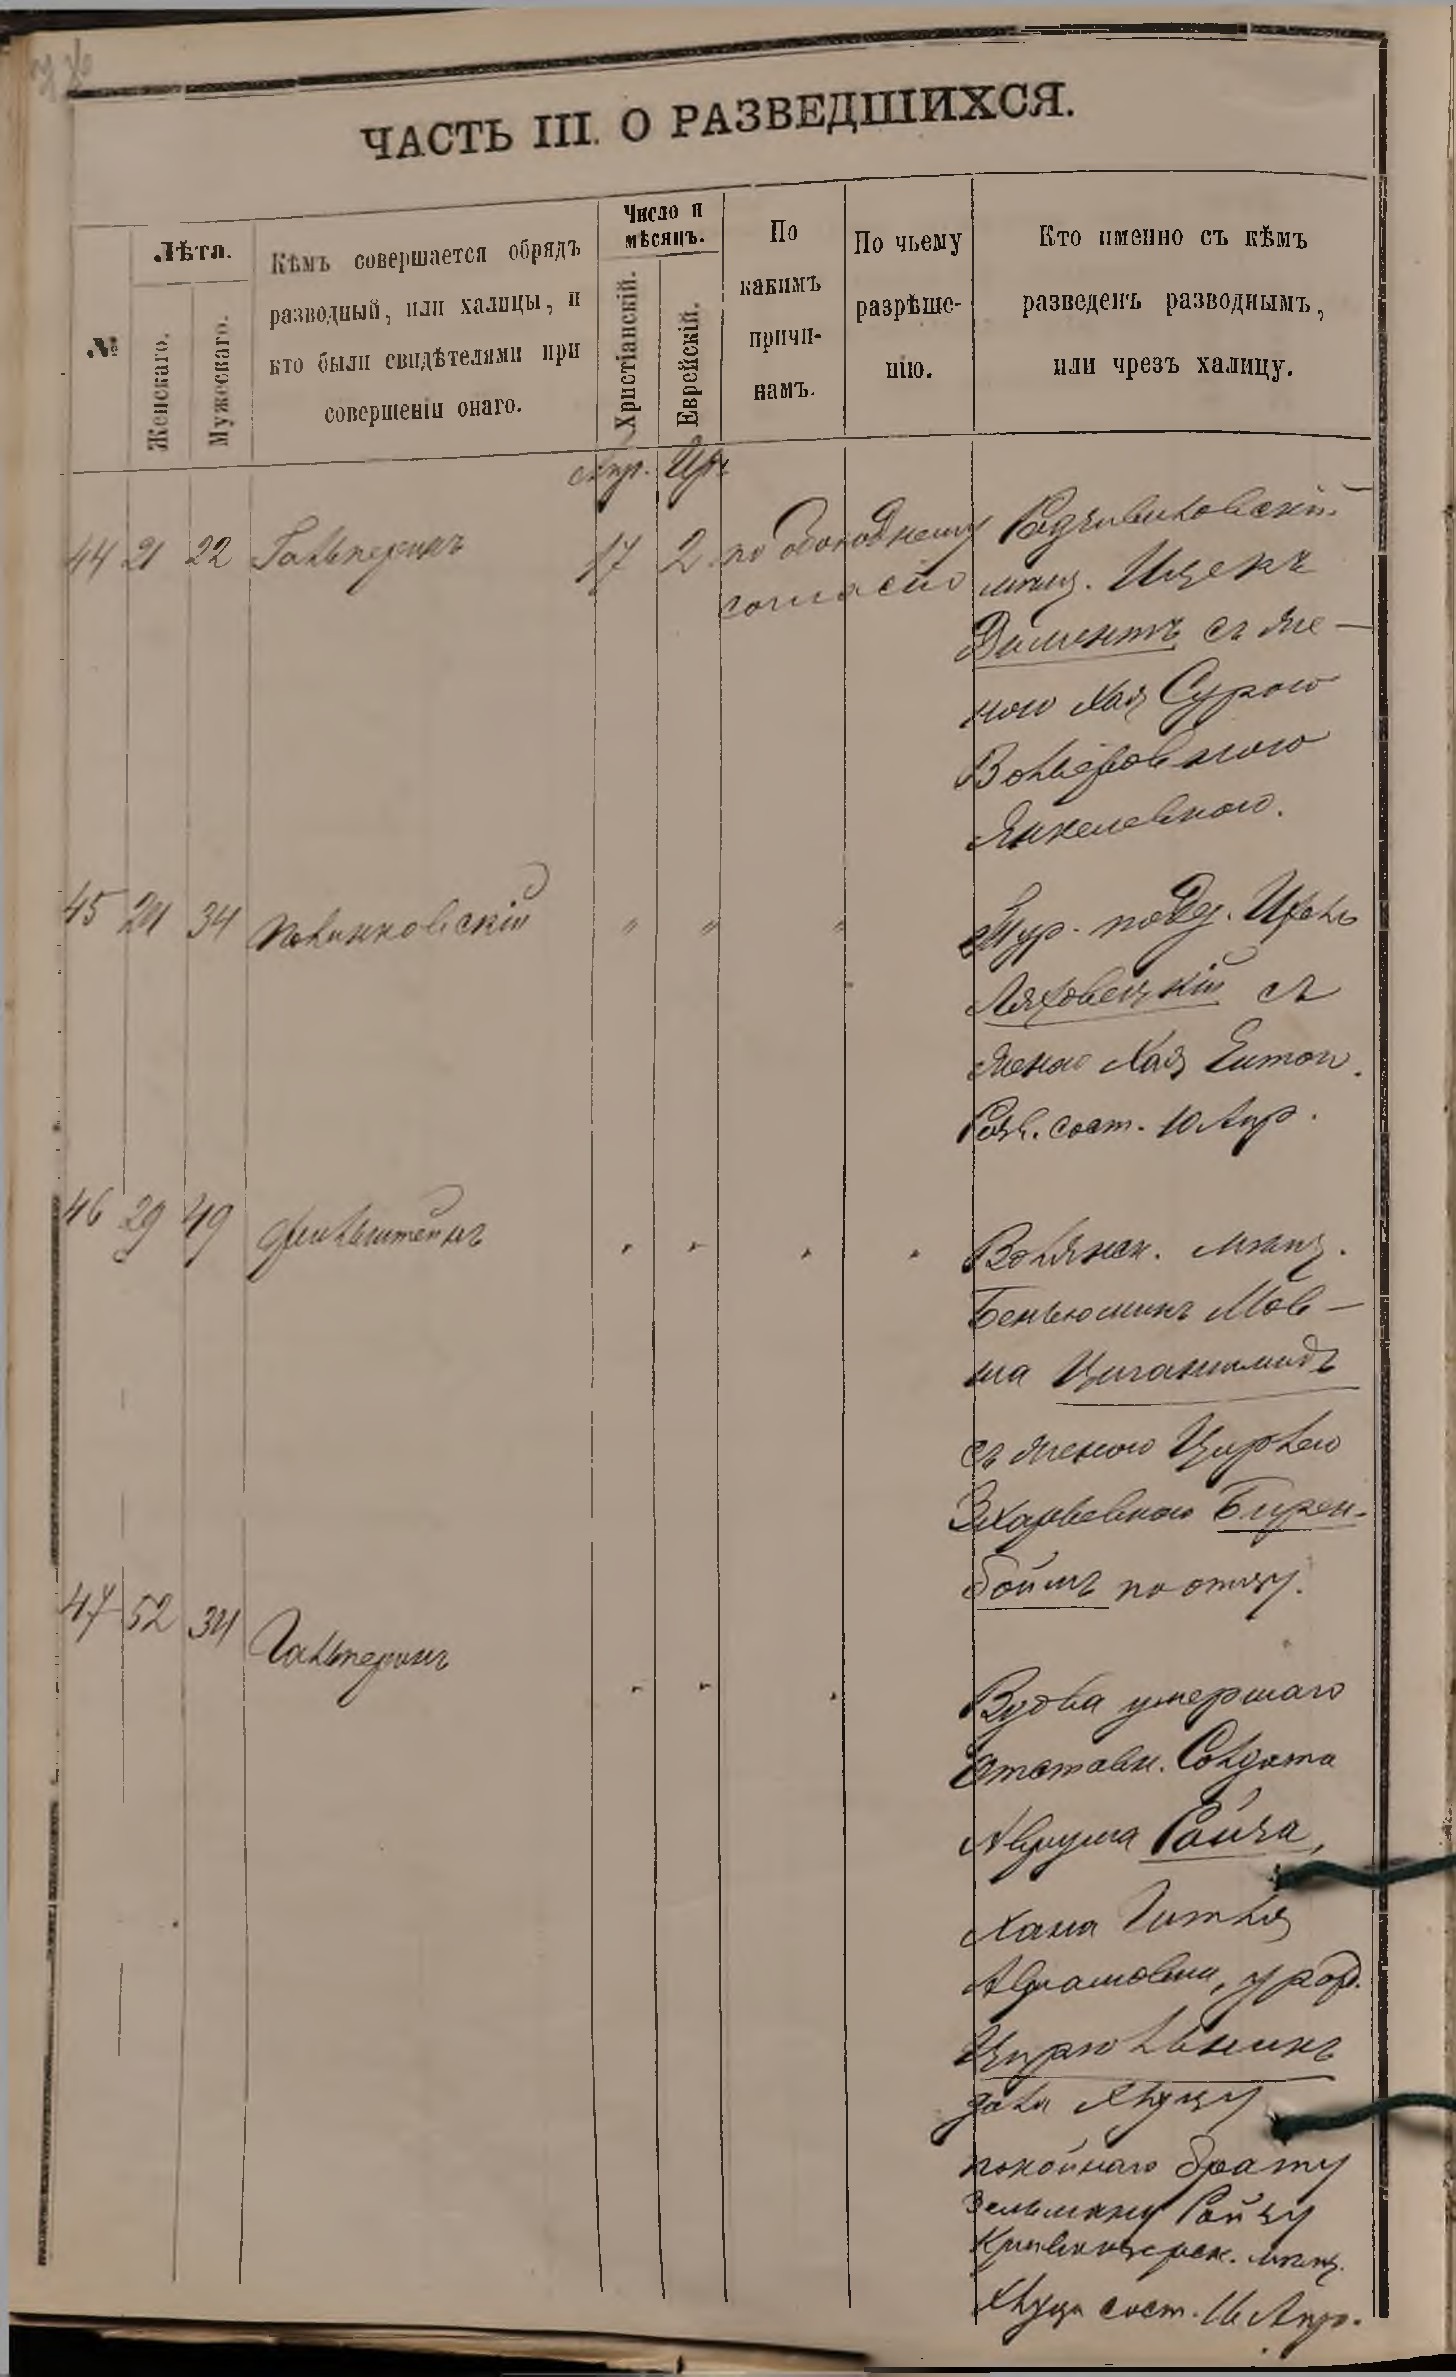 ЧАСТЬ III. О РАЗВЕДШИХСЯ.
№
Лѣта.
Женскаго.
Мужескаго.
Кѣмъ совершается обрядъ
разводный, или халицы, и
кто были свидѣтелями при
совершеніи онаго.
Число и
мѣсяцъ.
Христіанскій.
Еврейскій.
По
какимъ
причи-
намъ.
По чьему
разрѣше-
нію.
Кто именно съ кѣмъ
разведенъ разводнымъ,
или чрезъ халицу.
Апр. Ир.
44 21 22 Гальперинъ 17 2 по обоюдному
согласію
мѣщ. Ицекъ
Диментъ съ же-
ною Хая Сурою
Вольфовною
Янкелевною.
45 24 34 Полинковскій " " "
Тур. подд.
Ляховецкій съ
женою Хая Ентою.
Разв. сост. 10 Апр.
46 29 49 Финкельштейнъ " " " "
мѣщ.
Беньюминъ Мов-
ша
съ женою Цирлею
Бирен-
боймъ по отцу.
47 52 34 Гальперинъ " " "
Вдова умершаго
отставн. Солдата
Аврума Ройза,
Хана Гитля
Аврамовна, урожд.
дала Хлицу
покойнаго брату
Зельману Ройзу
мѣщ.
Хлица сост. 16 Апр.